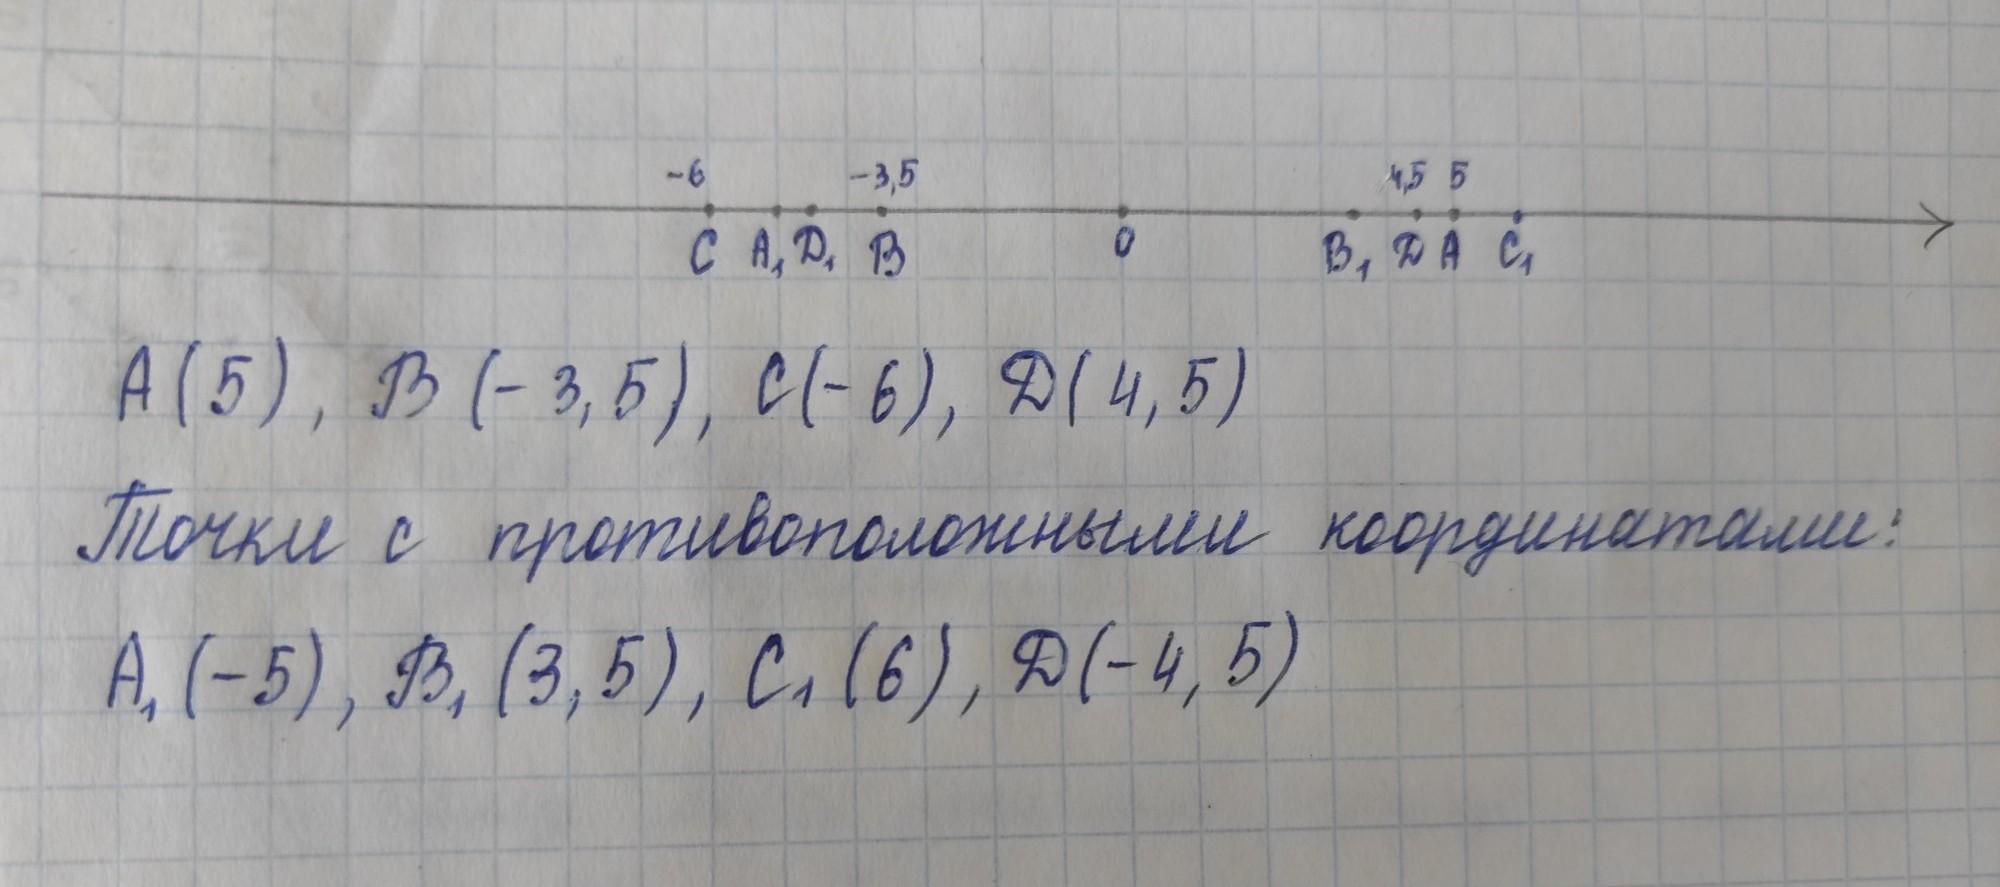 -6 -3,5 4,5 5
C A₁ D₁ B 0 B₁ D A C₁
A(5), B(-3,5), C(-6), D(4,5)
Точки с противоположными координатами:
A₁(-5), B₁(3,5), C₁(6), D(-4,5)